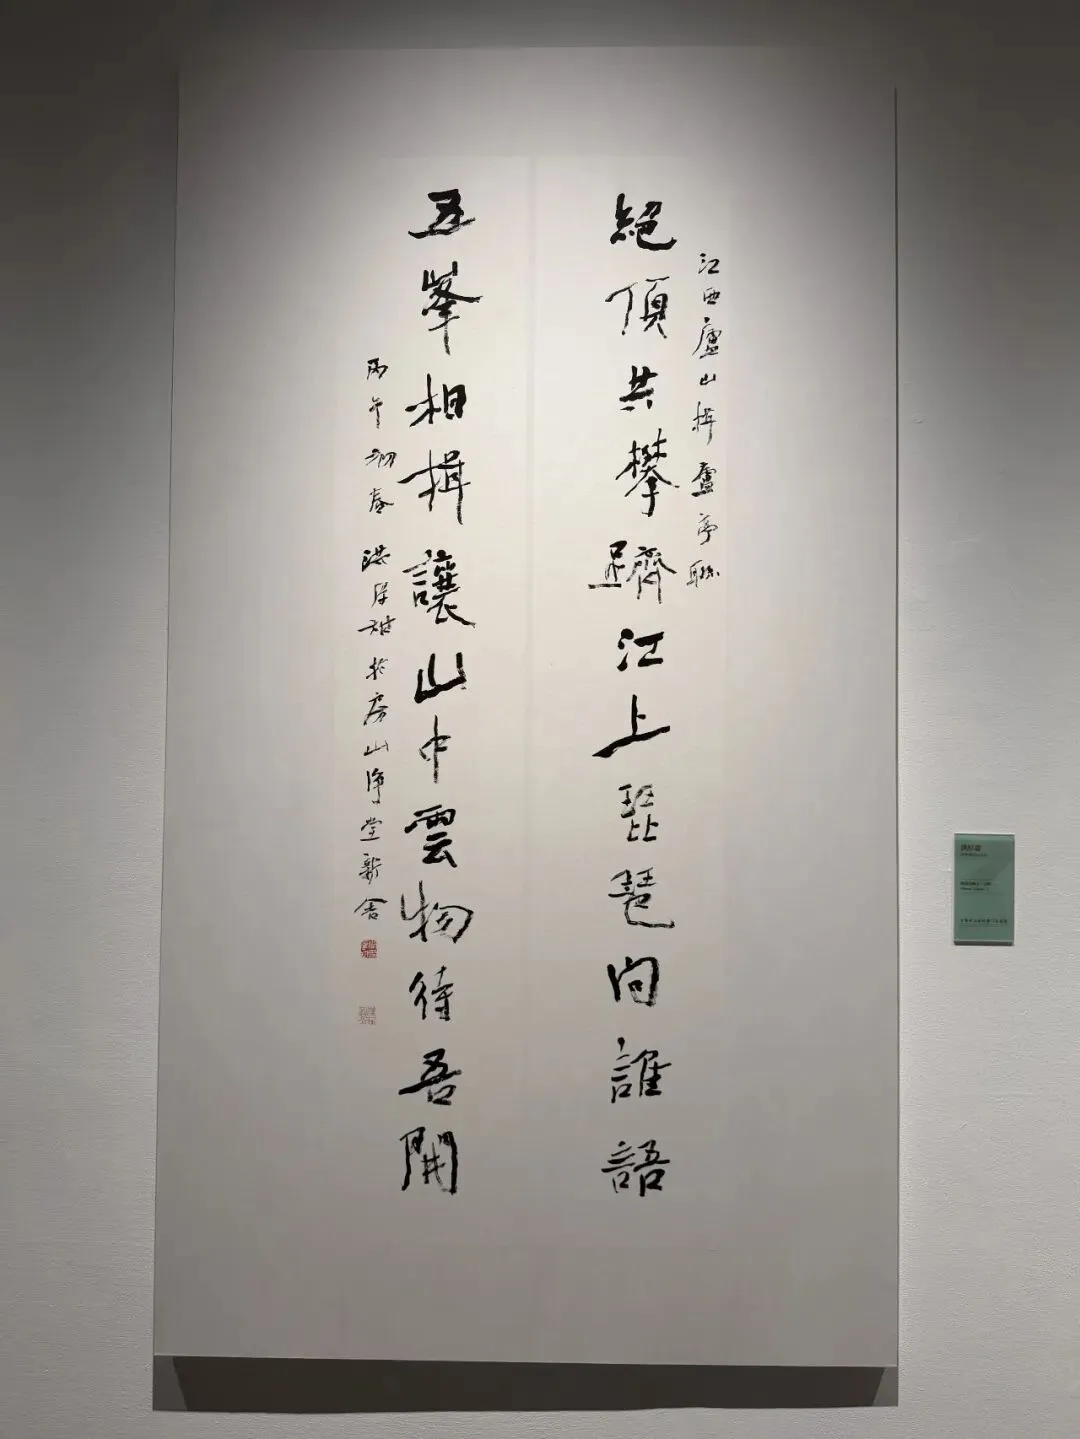 江西廬山揖廬亭聯
絕頂共攀躋江上琵琶向誰語
五峯相揖讓山中雲物待吾開
丙午初春洪厚甜於房山淨堂新舍